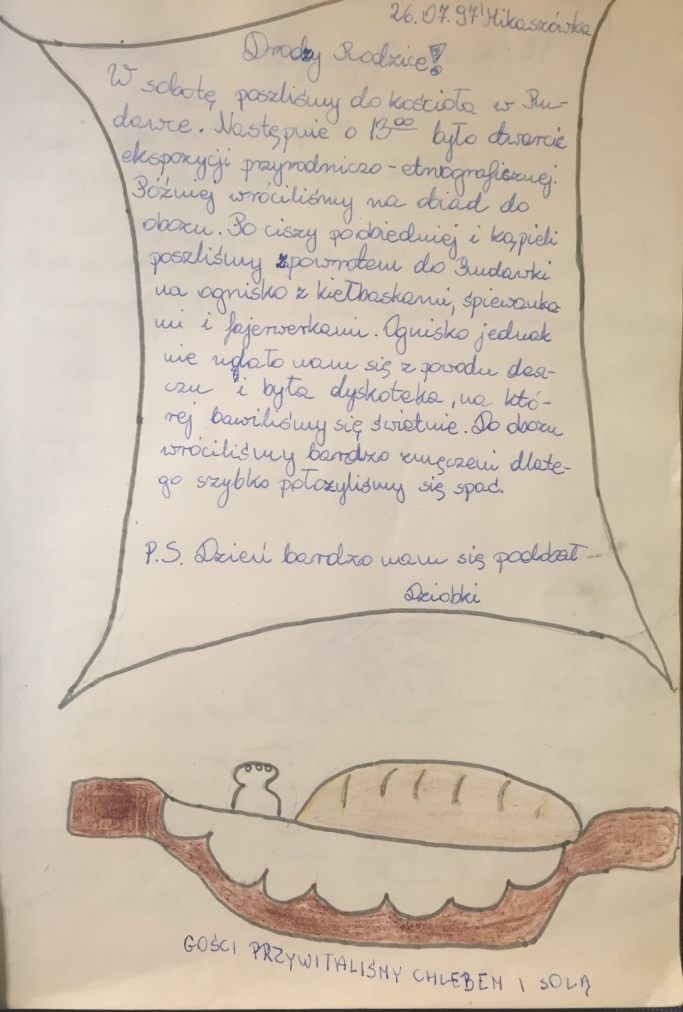 26.07.97 Mikaszówka
Drodzy Rodzice!
W sobotę poszliśmy do kościoła w Ru-
dawce. Następnie o 13⁰⁰ było otwarcie
ekspozycji przyrodniczo-etnograficznej.
Później wróciliśmy na obiad do
obozu. Po ciszy poobiedniej i kąpieli
poszliśmy zpowrotem do Rudawki
na ognisko z kiełbaskami, śpiewanka
mi i fajerwerkami. Ognisko jednak
nie udało nam się z powodu desz-
czu i była dyskoteka, na któ-
rej bawiliśmy się świetnie. Do obozu
wróciliśmy bardzo zmęczeni dlate-
go szybko położyliśmy się spać.
P.S. Dzień bardzo nam się podobał
Dziobki
GOŚCI PRZYWITALIŚMY CHLEBEM I SOLĄ